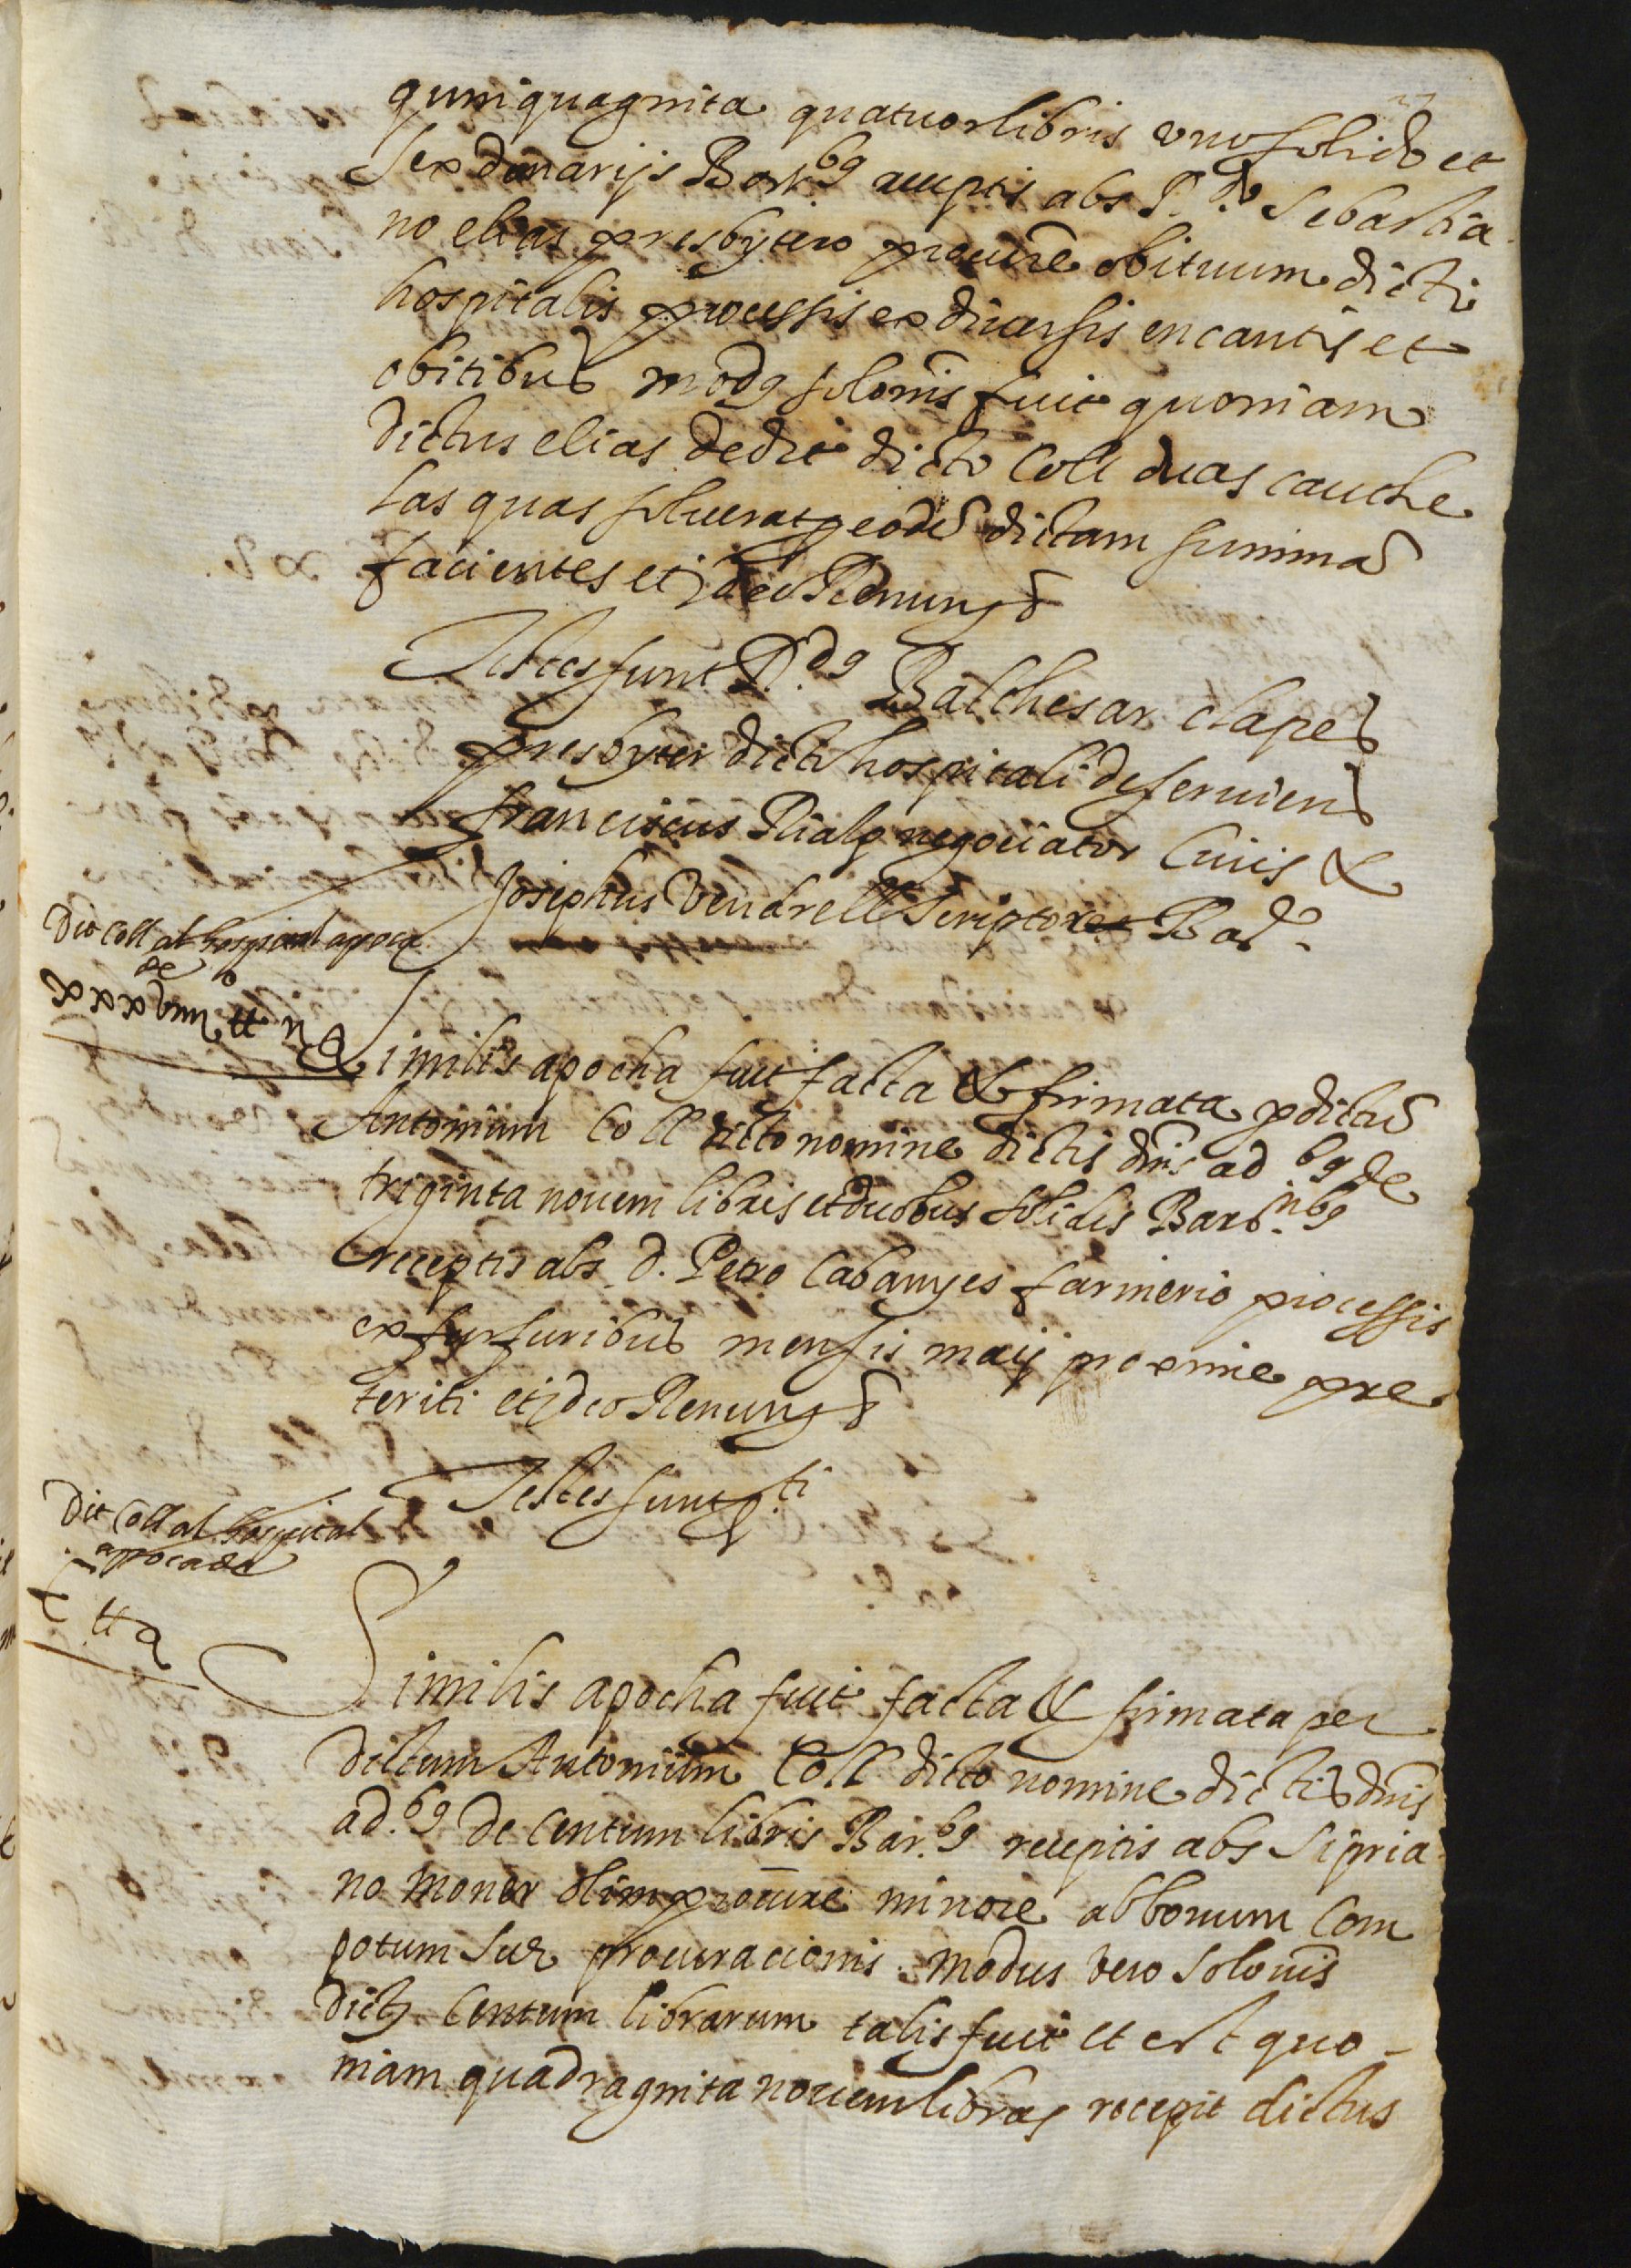 quinquaginta quatuor libris uno solido et
sex denarijs Bar.bq receptis abs R.do Sebastia
no elias presbytero procure obituum dicti
hospitalis processis ex diversis encantis et
obitibus modq solonis fuit quoniam
dictus elias dedit dicto Coll duas cauthe
las quas solverat p eode dictam summa
facientes et ideo Renung
Testes sunt R.dq Balthesar clapes
presbyter dicti hospitali deserviens
franciscus Rialp negociator Civis &
Josephus Vendrell Scriptor Bar.e
Dit Coll al hospital apoca
de
xxxxviiii tt ii s
Similis apocha fuit facta & firmata p dictu
Antonium Coll dicto nomine dictis dnis ad.bq de
triginta novem libris et duobus solidis Barc.nbq
receptis abs d. Petro Cabanyes farinerio processis
ex furfuribus mensis maij proxime pre
teriti et ideo Renung
Testes sunt p.ti
Dit Coll al hospital
appoca de
C tt s
Similis apocha fuit facta & firmata per
dictum Antonium Coll dicto nomine dictis dnis
ad.bq de centum libris Bar.bq receptis abs Sipria
no Moner olim procure minore ad bonum Com
potum sue procuracionis. Modus vero solonis
dictq centum librarum talis fuit et est quo-
niam quadraginta novem libras recepit dictus